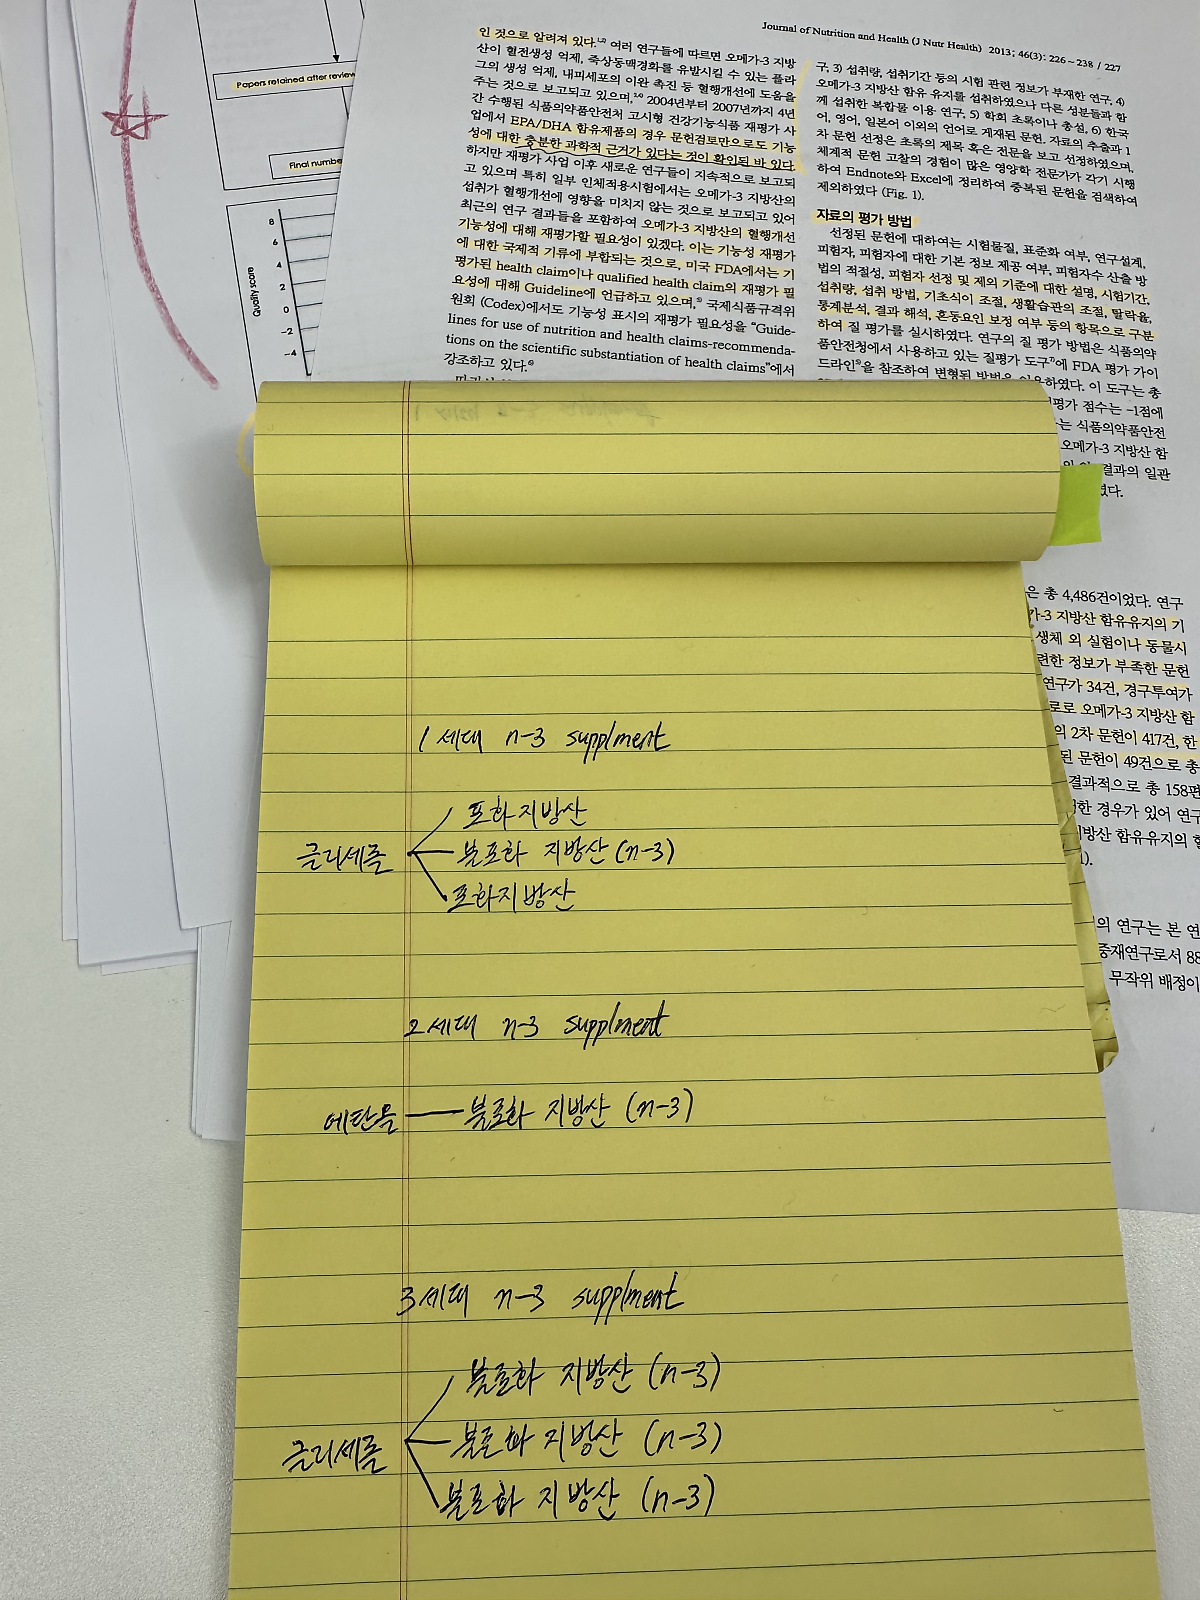 Papers retained after review
Final numbe
Quality score
8
6
4
2
0
−2
−4
Journal of Nutrition and Health (J Nutr Health) 2013; 46(3): 226 ~ 238 / 227
인 것으로 알려져 있다.¹,²⁾ 여러 연구들에 따르면 오메가-3 지방
산이 혈전생성 억제, 죽상동맥경화를 유발시킬 수 있는 플라
그의 생성 억제, 내피세포의 이완 촉진 등 혈행개선에 도움을
주는 것으로 보고되고 있으며, 2004년부터 2007년까지 4년
간 수행된 식품의약품안전처 고시형 건강기능식품 재평가 사
업에서 EPA/DHA 함유제품의 경우 문헌검토만으로도 기능
성에 대한 충분한 과학적 근거가 있다는 것이 확인된 바 있다.
하지만 재평가 사업 이후 새로운 연구들이 지속적으로 보고되
고 있으며 특히 일부 인체적용시험에서는 오메가-3 지방산의
섭취가 혈행개선에 영향을 미치지 않는 것으로 보고되고 있어
최근의 연구 결과들을 포함하여 오메가-3 지방산의 혈행개선
기능성에 대해 재평가할 필요성이 있겠다. 이는 기능성 재평가
에 대한 국제적 기류에 부합되는 것으로, 미국 FDA에서는 기
평가된 health claim이나 qualified health claim의 재평가 필
요성에 대해 Guideline에 언급하고 있으며, 국제식품규격위
원회 (Codex)에서도 기능성 표시의 재평가 필요성을 “Guide-
lines for use of nutrition and health claims-recommenda-
tions on the scientific substantiation of health claims”에서
강조하고 있다.⁶⁾
구, 3) 섭취량, 섭취기간 등의 시험 관련 정보가 부재한 연구, 4)
오메가-3 지방산 함유 유지를 섭취하였으나 다른 성분들과 함
께 섭취한 복합물 이용 연구, 5) 학회 초록이나 총설, 6) 한국
어, 영어, 일본어 이외의 언어로 게재된 문헌. 자료의 추출과 1
차 문헌 선정은 초록의 제목 혹은 전문을 보고 선정하였으며,
체계적 문헌 고찰의 경험이 많은 영양학 전문가가 각기 시행
하여 Endnote와 Excel에 정리하여 중복된 문헌을 검색하여
제외하였다 (Fig. 1).
자료의 평가 방법
선정된 문헌에 대하여는 시험물질, 표준화 여부, 연구설계,
피험자, 피험자에 대한 기본 정보 제공 여부, 피험자수 산출 방
법의 적절성, 피험자 선정 및 제외 기준에 대한 설명, 시험기간,
섭취량, 섭취 방법, 기초식이 조절, 생활습관의 조절, 탈락율,
통계분석, 결과 해석, 혼동요인 보정 여부 등의 항목으로 구분
하여 질 평가를 실시하였다. 연구의 질 평가 방법은 식품의약
품안전청에서 사용하고 있는 질평가 도구⁷⁾에 FDA 평가 가이
드라인⁵⁾을 참조하여 변형된 방법을 이용하였다. 이 도구는 총
평가 점수는 −1점에
는 식품의약품안전
오메가-3 지방산 함
결과의 일관
였다.
은 총 4,486건이었다. 연구
가-3 지방산 함유유지의 기
생체 외 실험이나 동물시
련한 정보가 부족한 문헌
연구가 34건, 경구투여가
로로 오메가-3 지방산 함
의 2차 문헌이 417건, 한
된 문헌이 49건으로 총
결과적으로 총 158편
한 경우가 있어 연구
지방산 함유유지의 혈
1).
의 연구는 본 연
중재연구로서 88
무작위 배정이
1세대 n-3 supplment
포화지방산
글리세롤 불포화 지방산 (n-3)
포화지방산
2세대 n-3 supplment
에탄올 불포화 지방산 (n-3)
3세대 n-3 supplment
불포화 지방산 (n-3)
글리세롤 불포화 지방산 (n-3)
불포화 지방산 (n-3)